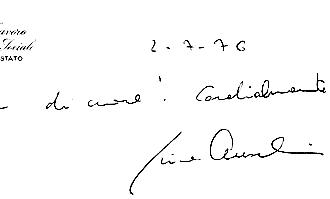 avoro
Sociali
STATO
2-7-76
di cuore! Cordialmente